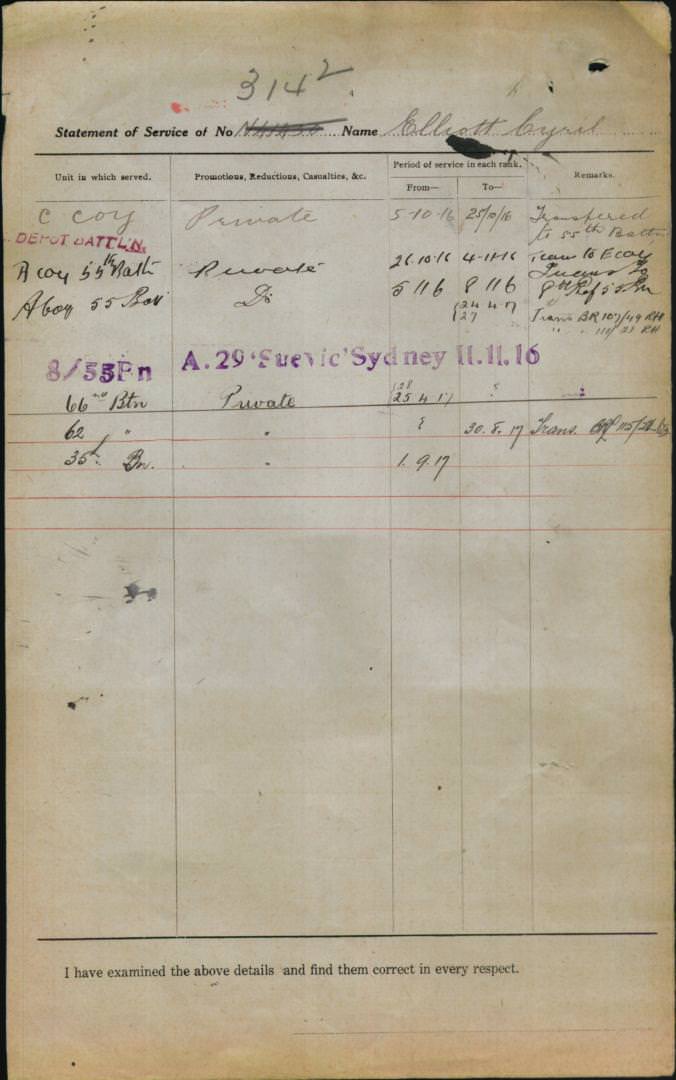 3142
Statement of Service of No Name Elliott Cyril
Unit in which served. Promotions, Reductions, Casualties, &c. Period of service in each rank. Remarks.
From— To—
C Coy Private 5-10-16 Transfered
DEPOT BATTLN. to 55th Battn
A Coy 55th Battn Private 26.10.16 4-11-16 Trans to E Coy
A Coy 55 Do 5 11 6 8 11 6 8th Ref 55 Bn
24 4 17
27 Trans BR 107/49 RH
" " 111/21 RH
8/55Bn A.29 'Suevic' Sydney 11.11.16
66th Btn Private 28
25 4 17
62 " " 30.8.17 Trans.
35th Bn. " 1.9.17
I have examined the above details and find them correct in every respect.